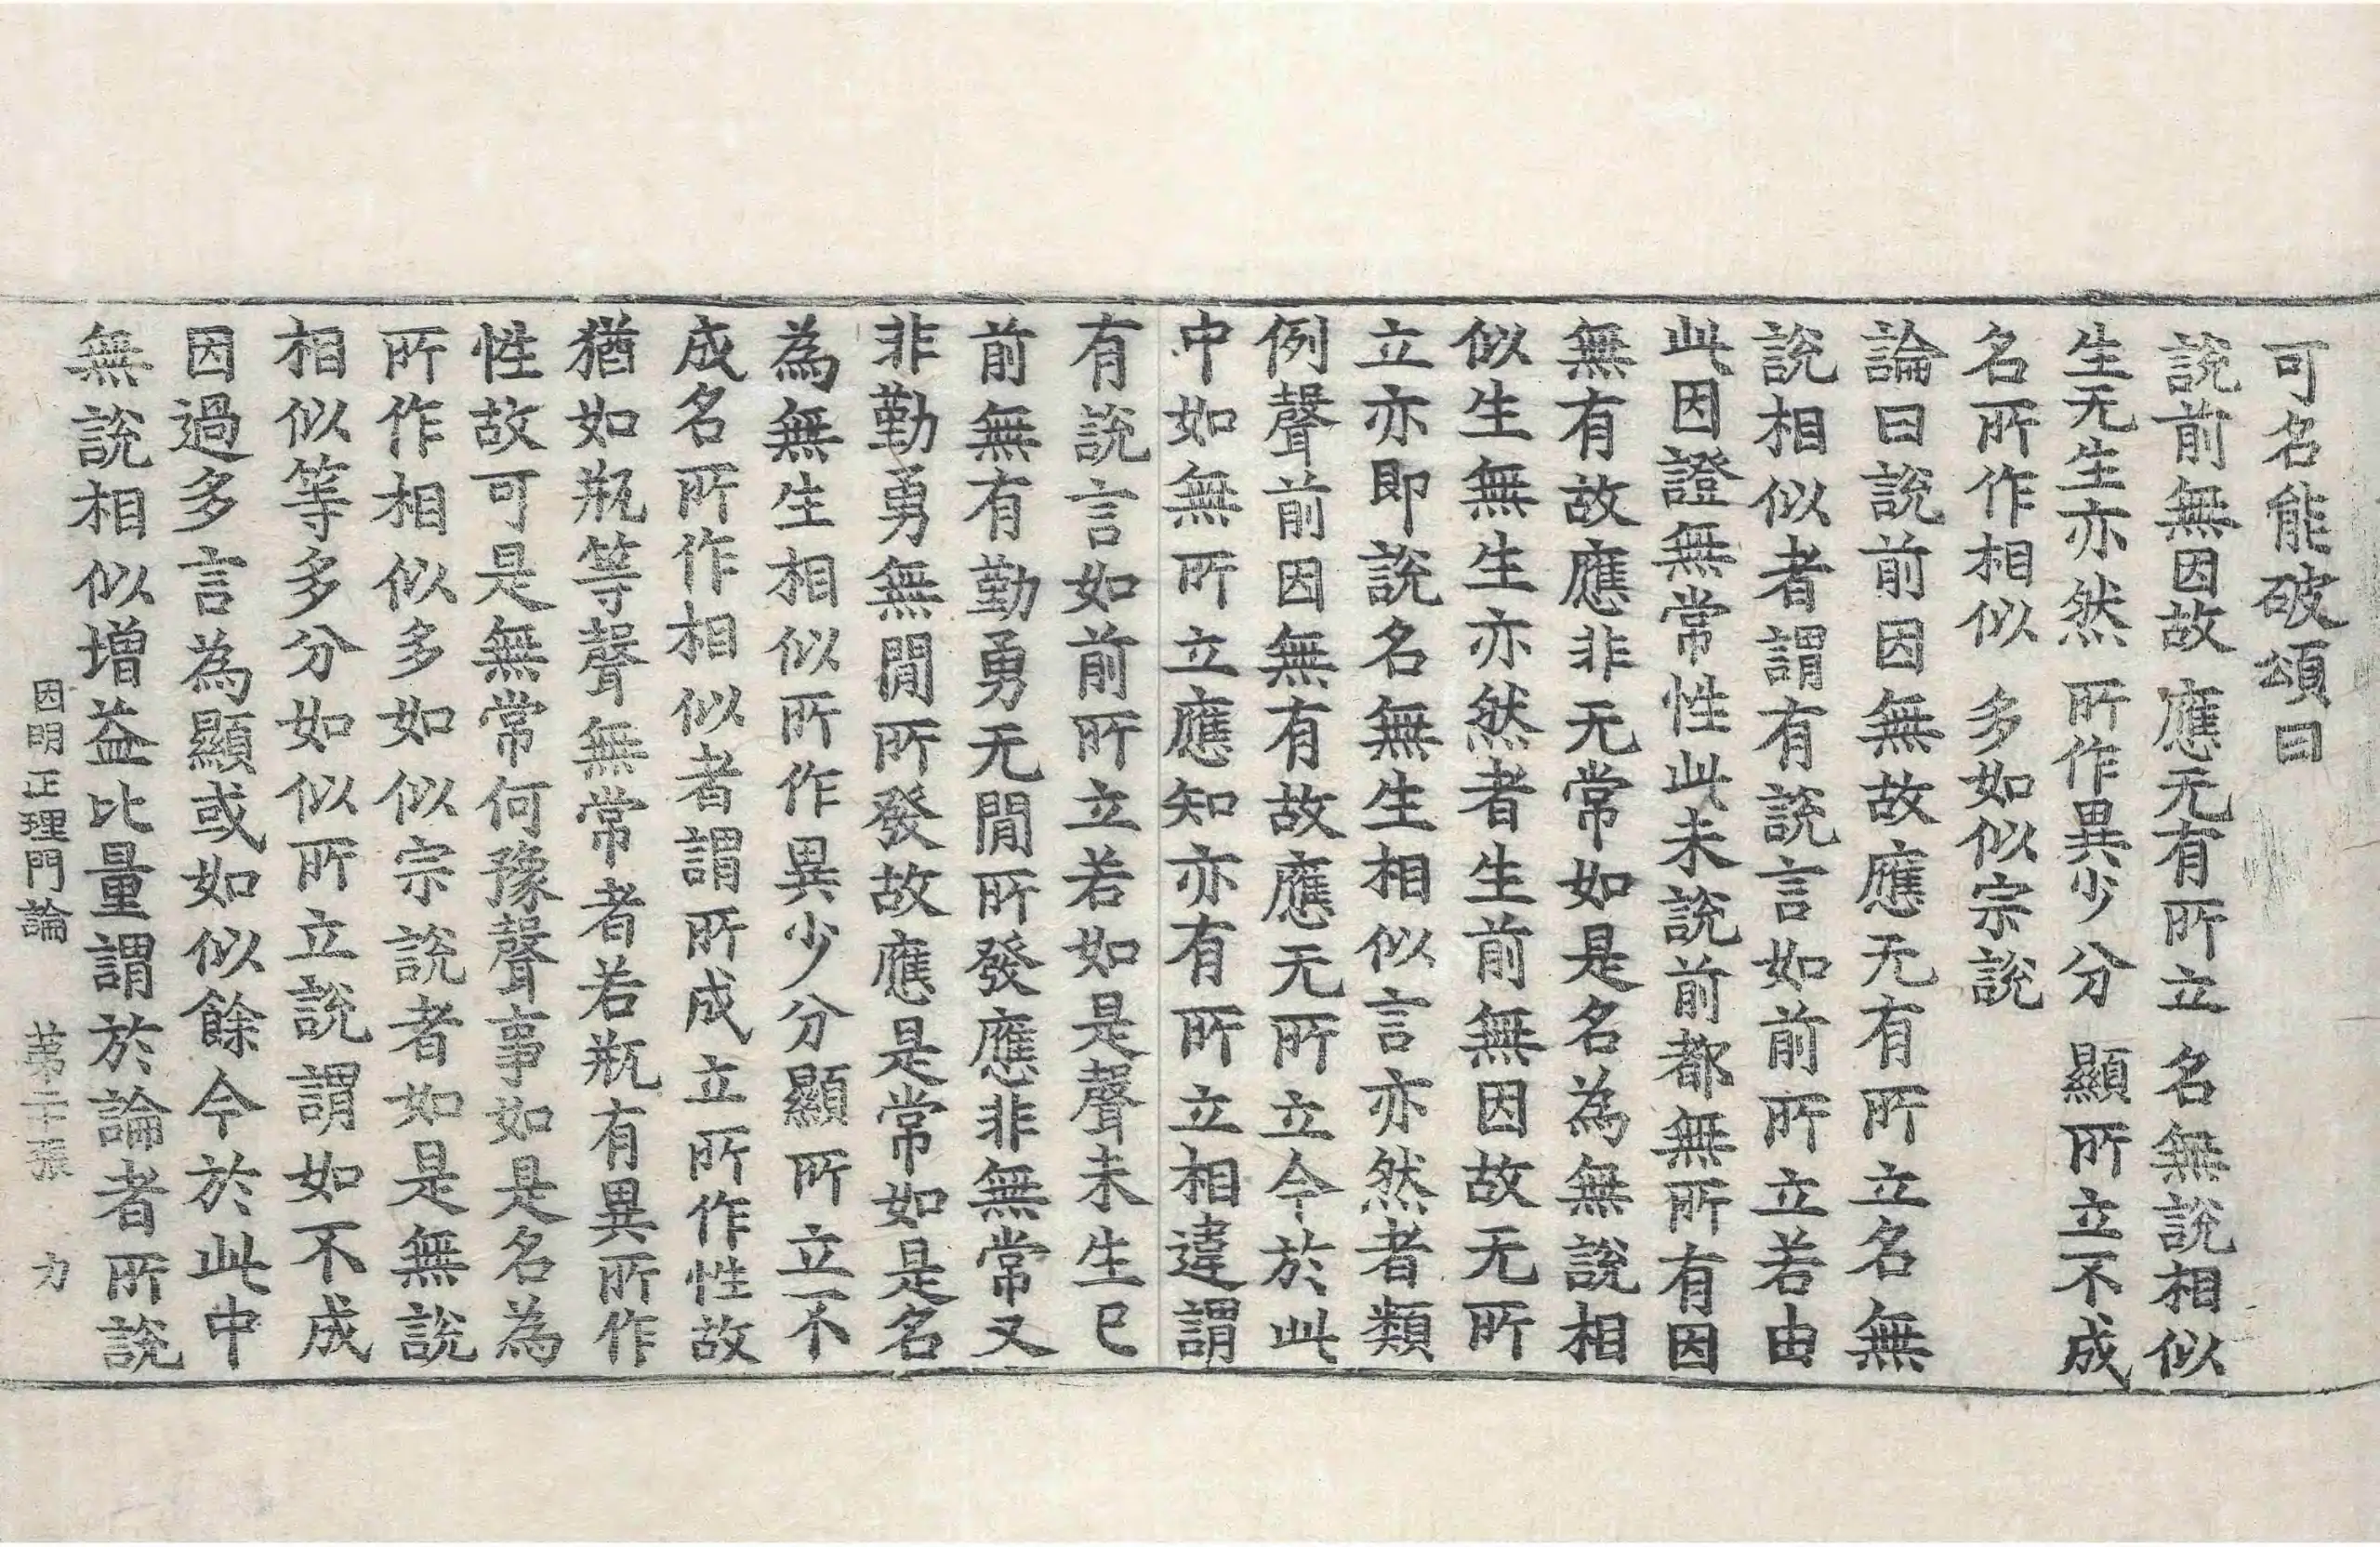 可名能破頌曰
說前無因故 應无有所立 名無說相似
生无生亦然 所作異少分 顯所立不成
名所作相似 多如似宗說
論曰說前因無故應无有所立名無
說相似者謂有說言如前所立若由
此因證無常性此未說前都無所有因
無有故應非无常如是名為無說相
似生無生亦然者生前無因故无所
立亦即說名無生相似言亦然者類
例聲前因無有故應无所立今於此
中如無所立應知亦有所立相違謂
有說言如前所立若如是聲未生已
前無有勤勇无間所發應非無常又
非勤勇無間所發故應是常如是名
為無生相似所作異少分顯所立不
成名所作相似者謂所成立所作性故
猶如瓶等聲無常者若瓶有異所作
性故可是無常何豫聲事如是名為
所作相似多如似宗說者如是無說
相似等多分如似所立說謂如不成
因過多言為顯或如似餘今於此中
無說相似增益比量謂於論者所說
因明正理門論 苐二十張 力